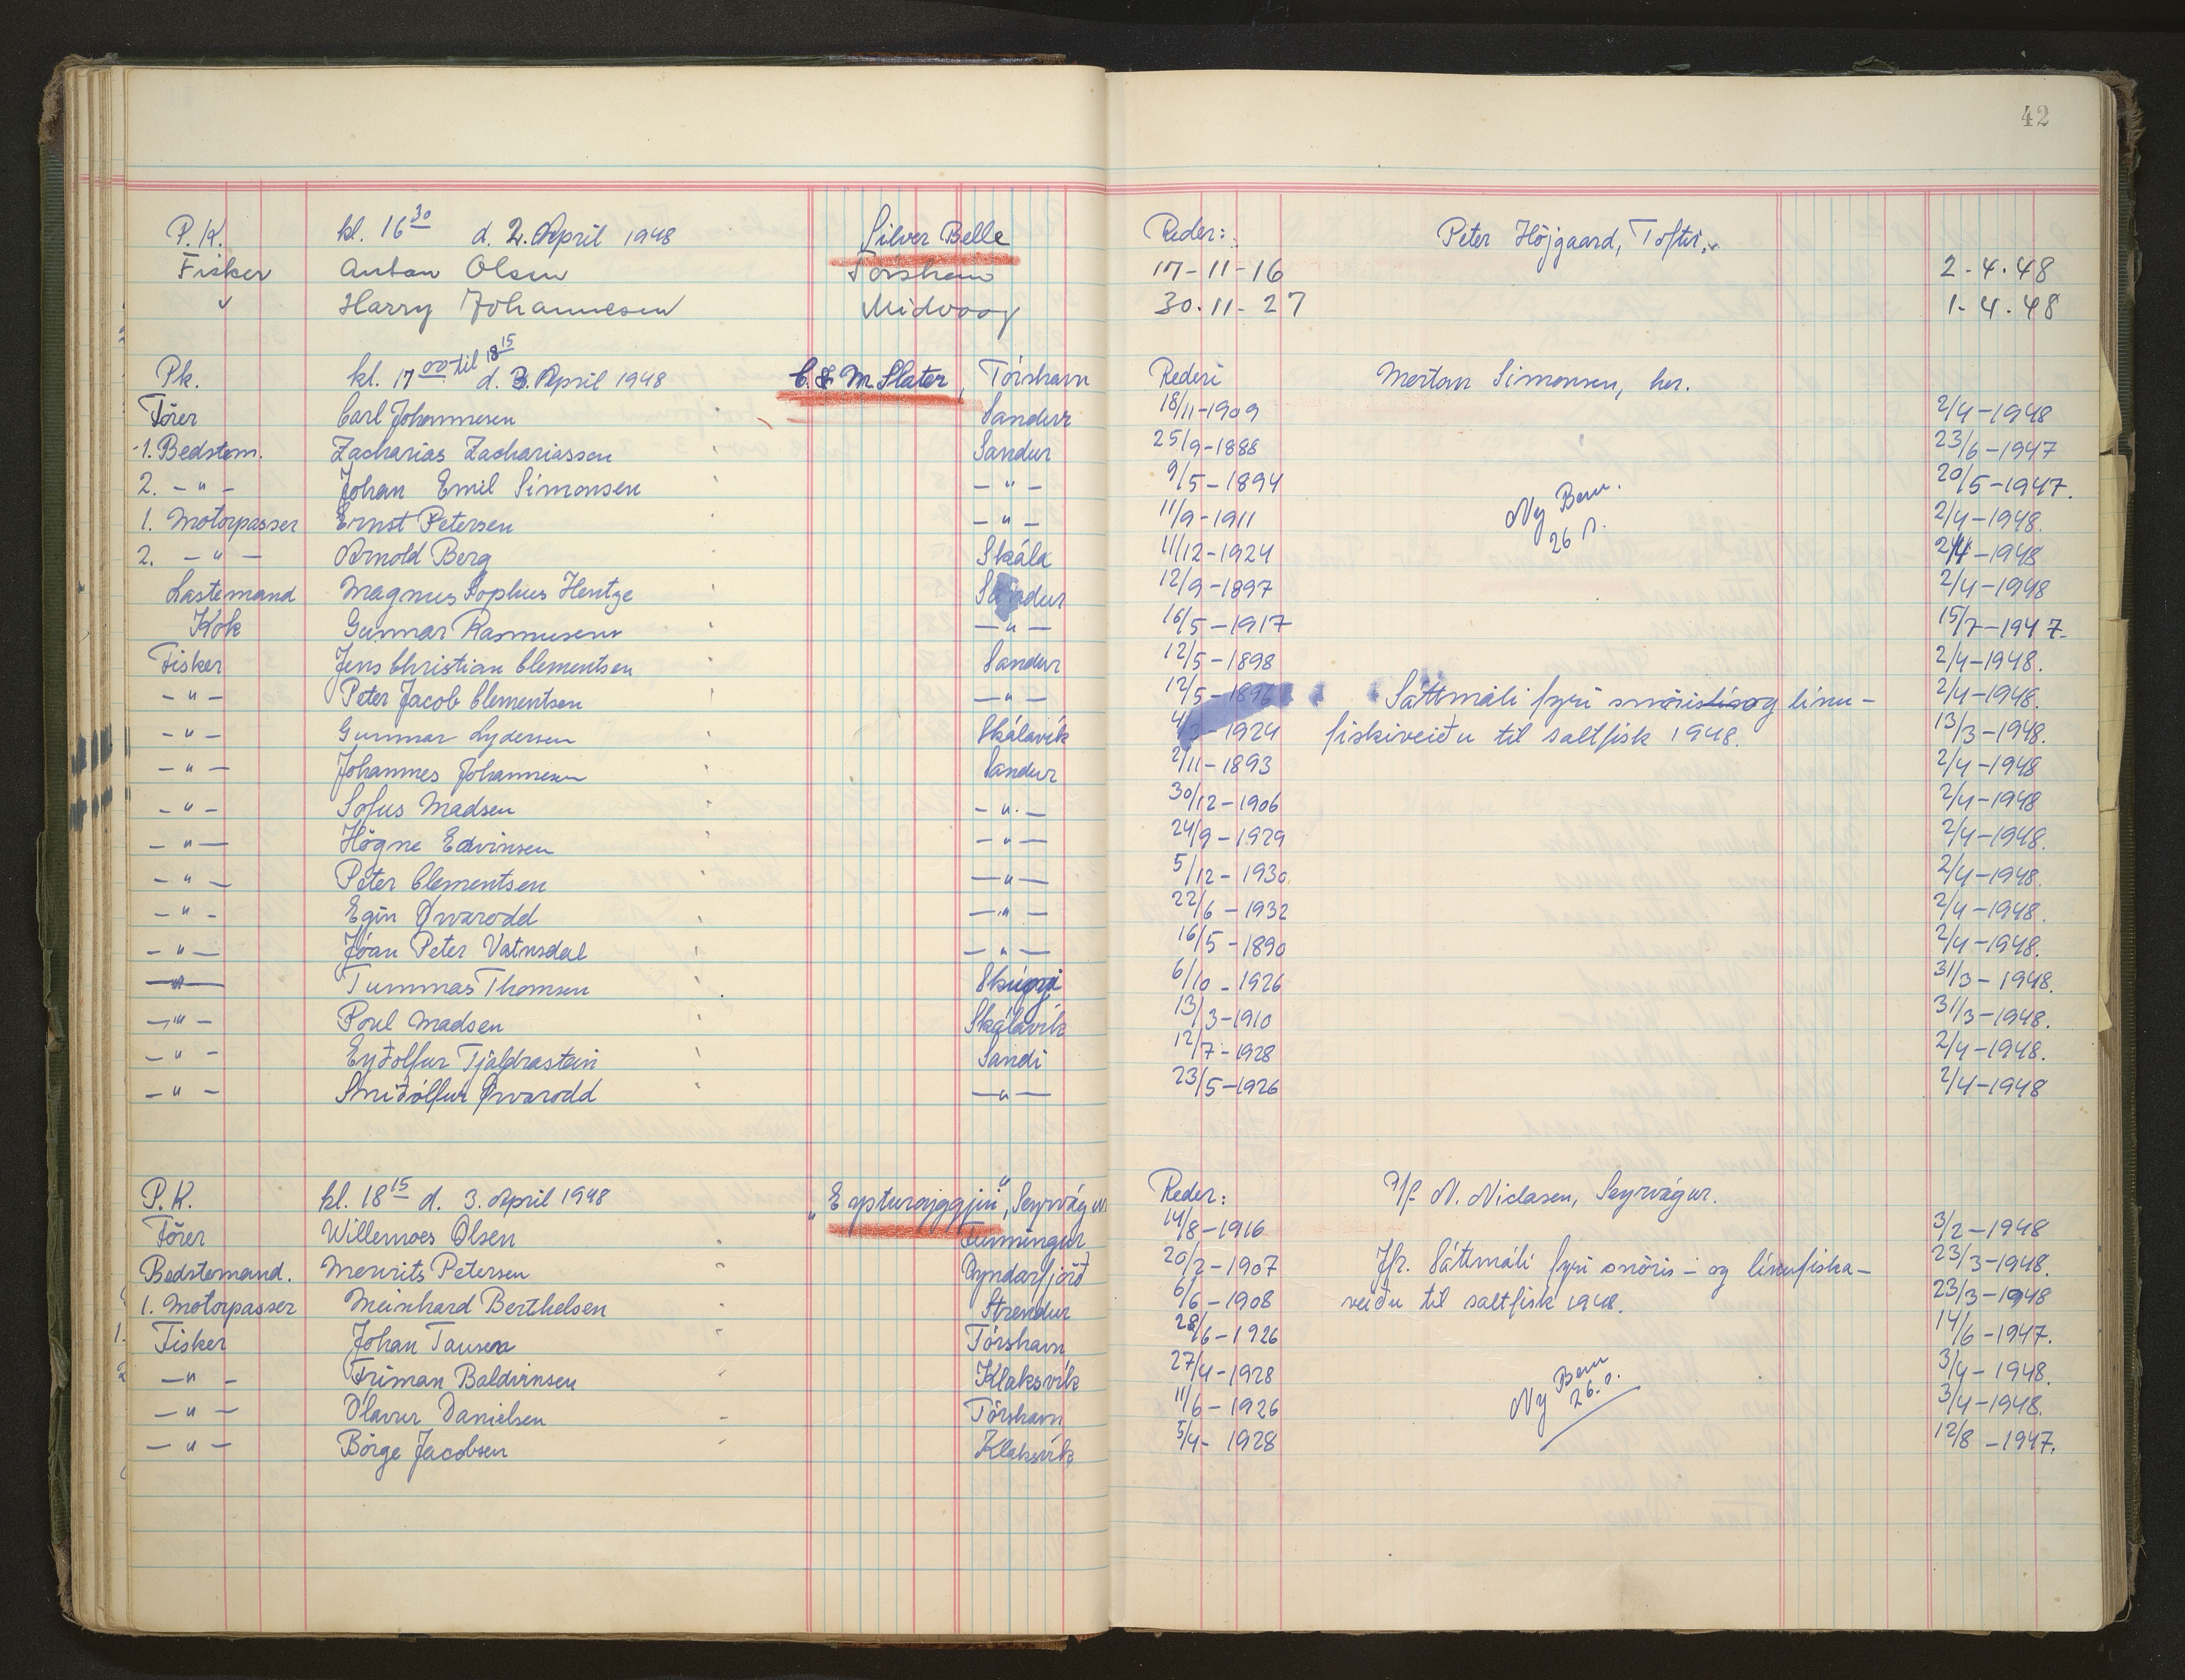 42
P.K. kl. 16 30 d. 2. April 1948 Silver Belle Reder: Peter Höjgaard, Toftir.
Fisker Anton Olsen Tórshavn 17-11-16 2-4.48
Harry Johannesen Midvaag 30.11-27 1-4.48
Pk. kl. 17 00 til 18 15 d. 3. April 1948 C. & M. Slater, Tórshavn Rederi Mortan Simonsen, her.
Förer Carl Johannesen Sandur 18/11-1909 2/4-1948
1. Bedstem. Zacharias Zachariassen Sandur 25/9-1888 23/6-1947
2. -"- Johan Emil Simonsen -"- 9/5-1894 20/5-1947.
1. Motorpasser Ernst Petersen -"- 11/9-1911 Ny Bem. 26 2/4-1948.
2. -"- Arnold Berg Skála 11/12-1924 2/4-1948
Lastemand Magnus Sophus Hentze Sandur 12/9-1897 2/4-1948
Kok Gunnar Rasmussen -"- 16/5-1917 15/7-1947.
Fisker Jens Christian Clementsen Sandur 12/5-1898 2/4-1948.
-"- Peter Jacob Clementsen -"- 12/5-1896 Sáttmáli fyri snöris og línu- 2/4-1948.
-"- Gunnar Lydersen Skálavík 4/3-1924 fiskiveiðu til saltfisk 1948. 13/3-1948.
-"- Johannes Johannesen Sandur 2/11-1893 2/4-1948
-"- Sofus Madsen -"- 30/12-1906 2/4-1948
-"- Högne Edvinsen -"- 24/9-1929 2/4-1948.
-"- Peter Clementsen -"- 5/12-1930 2/4-1948.
-"- Egin Ørvarodd -"- 22/6-1932 2/4-1948.
-"- Jóan Peter Vatnsdal -"- 16/5-1890 2/4-1948.
-"- Tummas Thomsen Skúgvi 6/10-1926 31/3-1948.
-"- Poul Madsen Skálavík 13/3-1910 31/3-1948.
-"- Eyðolfur Tjaldrastein Sandi 12/7-1928 2/4-1948.
-"- Sniðólfur Ørvarodd -"- 23/5-1926 2/4-1948
P.K. kl. 18 15 d. 3. April 1948 "Eysturoyggjin", Seyrvágur Reder: P/f N. Niclasen, Seyrvágur.
Förer Willemoes Olsen Funningur 14/8-1916 3/2-1948
Bedstemand. Mourits Petersen Oyndarfjörð 20/2-1907 Jfr. Sáttmáli fyri snöris- og línufiska- 23/3-1948.
1. Motorpasser Meinhard Berthelsen Strendur 6/6-1908 veiðu til saltfisk 1948. 23/3-1948
Fisker Johan Tausen Tórshavn 28/6-1926 14/6-1947.
-"- Fríman Baldvinsen Klaksvík 27/4-1928 3/4-1948.
-"- Ólavur Danielsen Tórshavn 11/6-1926 Ny Bem 26. 3/4-1948.
-"- Börge Jacobsen Klaksvík 5/4-1928 12/8-1947.